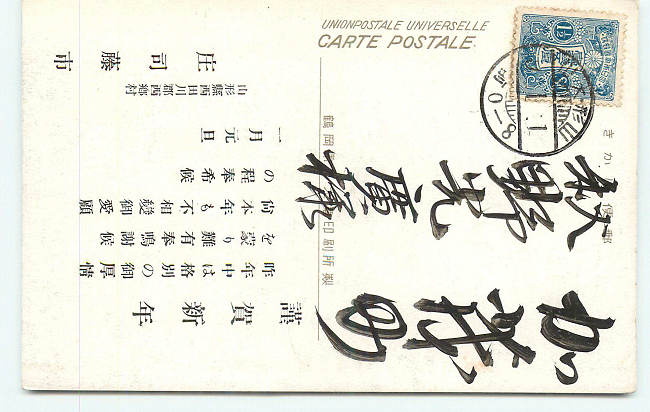 UNIONPOSTALE UNIVERSELLE
CARTE POSTALE
加茂町
秋野光廣様
謹賀新年
昨年中は格別の御厚情
を蒙り難有奉鳴謝候
尚本年も不相變御愛顧
の程奉希候
一月元日
山形縣西田川郡西郷村
庄司藤市
鶴岡
印刷所製